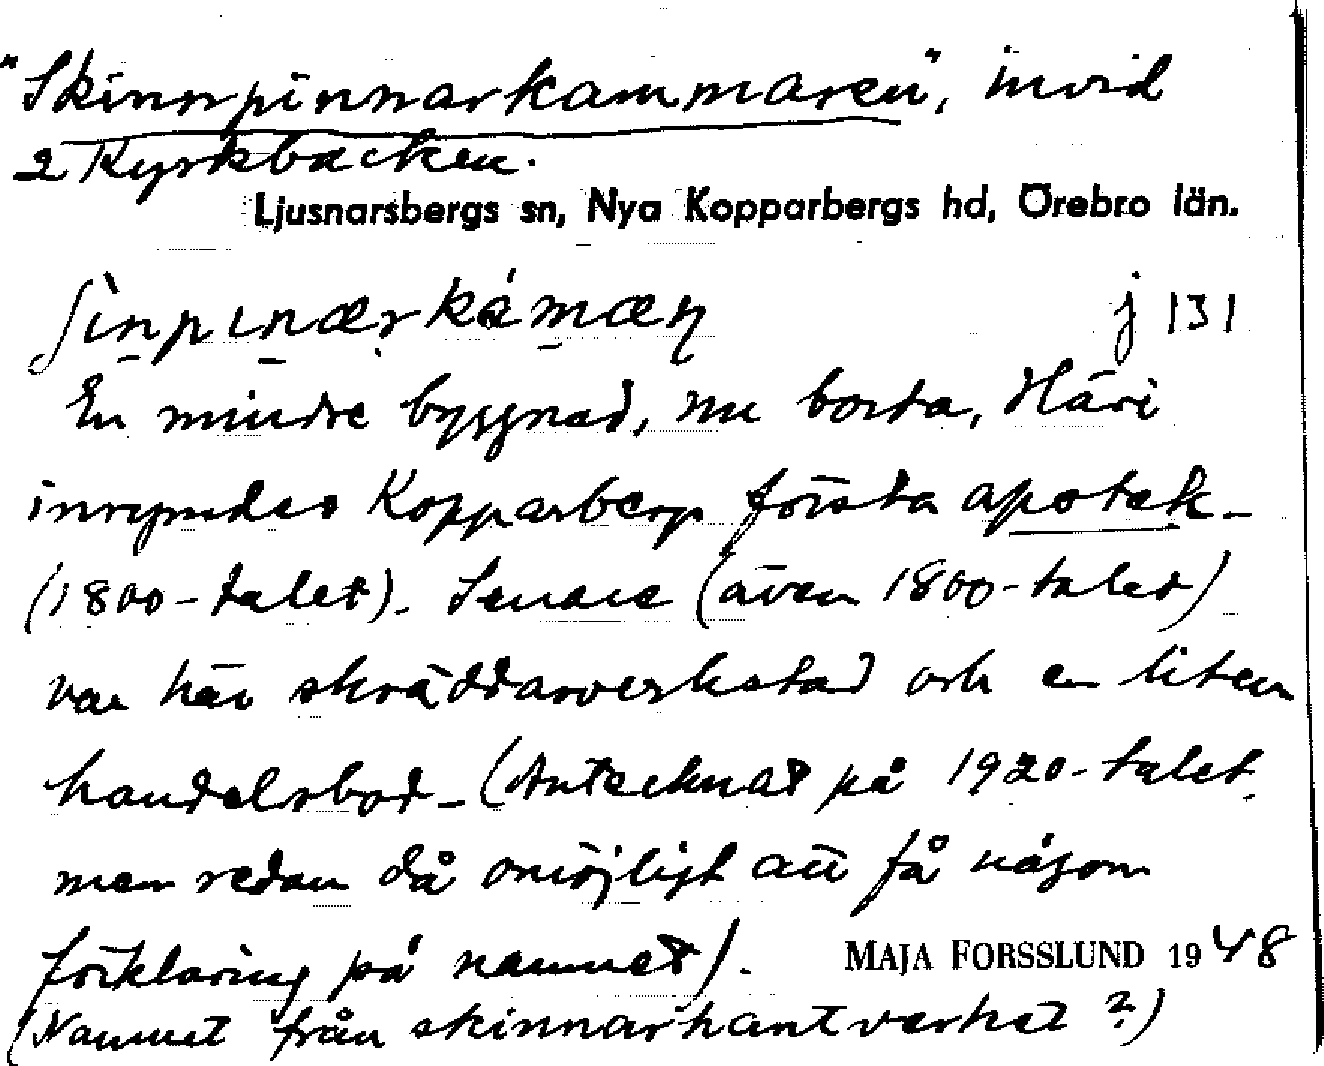 "Skinnpinnarkammaren", invid
2 Kyrkbacken.
Ljusnarsbergs sn, Nya Kopparbergs hd, Örebro län.
ʃinpinærkámæn j 131
En mindre byggnad, nu borta. Häri
inrymdes Kopparbergs första apotek -
(1800-talet). Senare (även 1800-talet)
var här skräddarverkstad och en liten
handelsbod - (Antecknat på 1920-talet,
men redan då omöjligt att få någon
förklaring på namnet).
MAJA FORSSLUND 1948
(Namnet från skinnarhantverket?)